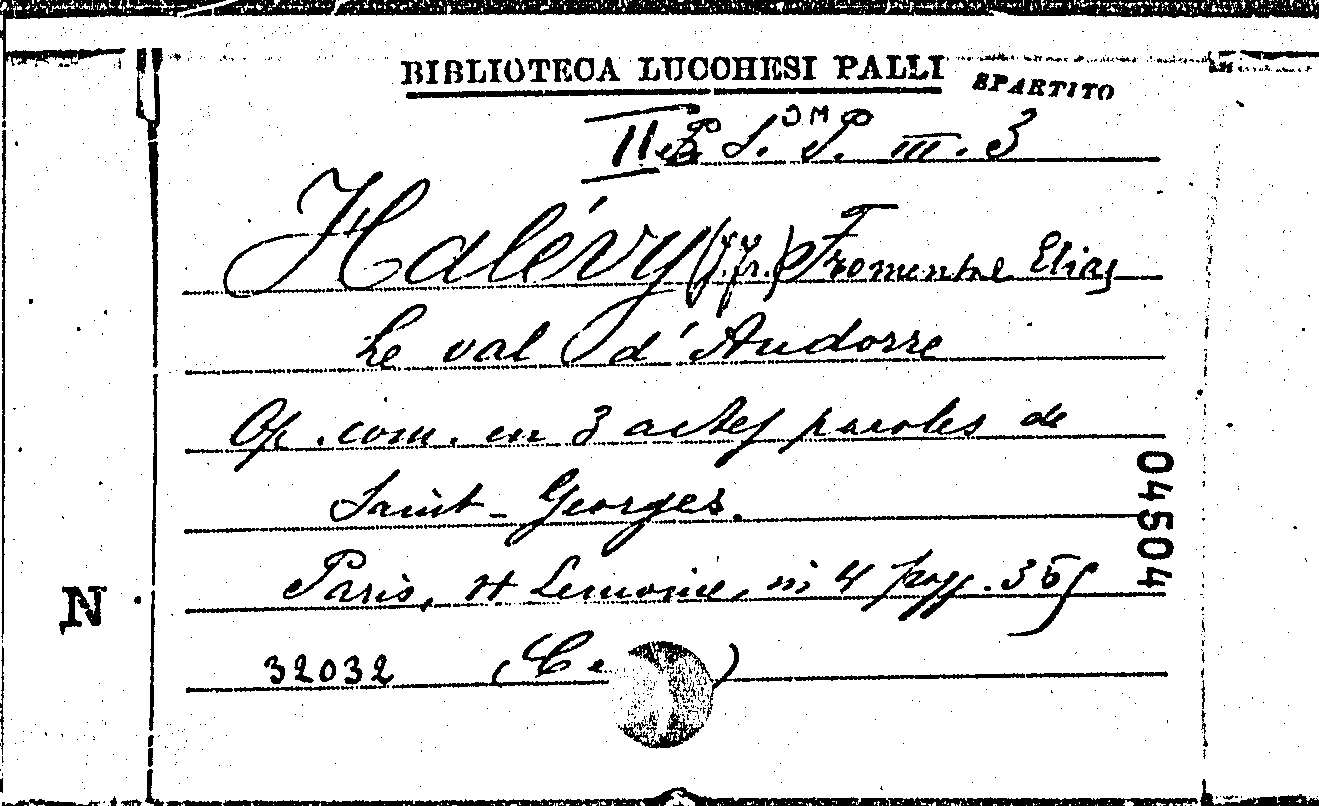 BIBLIOTECA LUCCHESI PALLI
SPARTITO
II. S. P. III. 3
Halévy (J. Fr.) Fromental Elias
Le val d'Andorre
Op. com. en 3 actes paroles de
Saint-Georges.
Paris, H Lemoine, in 4 pagg. 365
32032 (C. )
04504
N